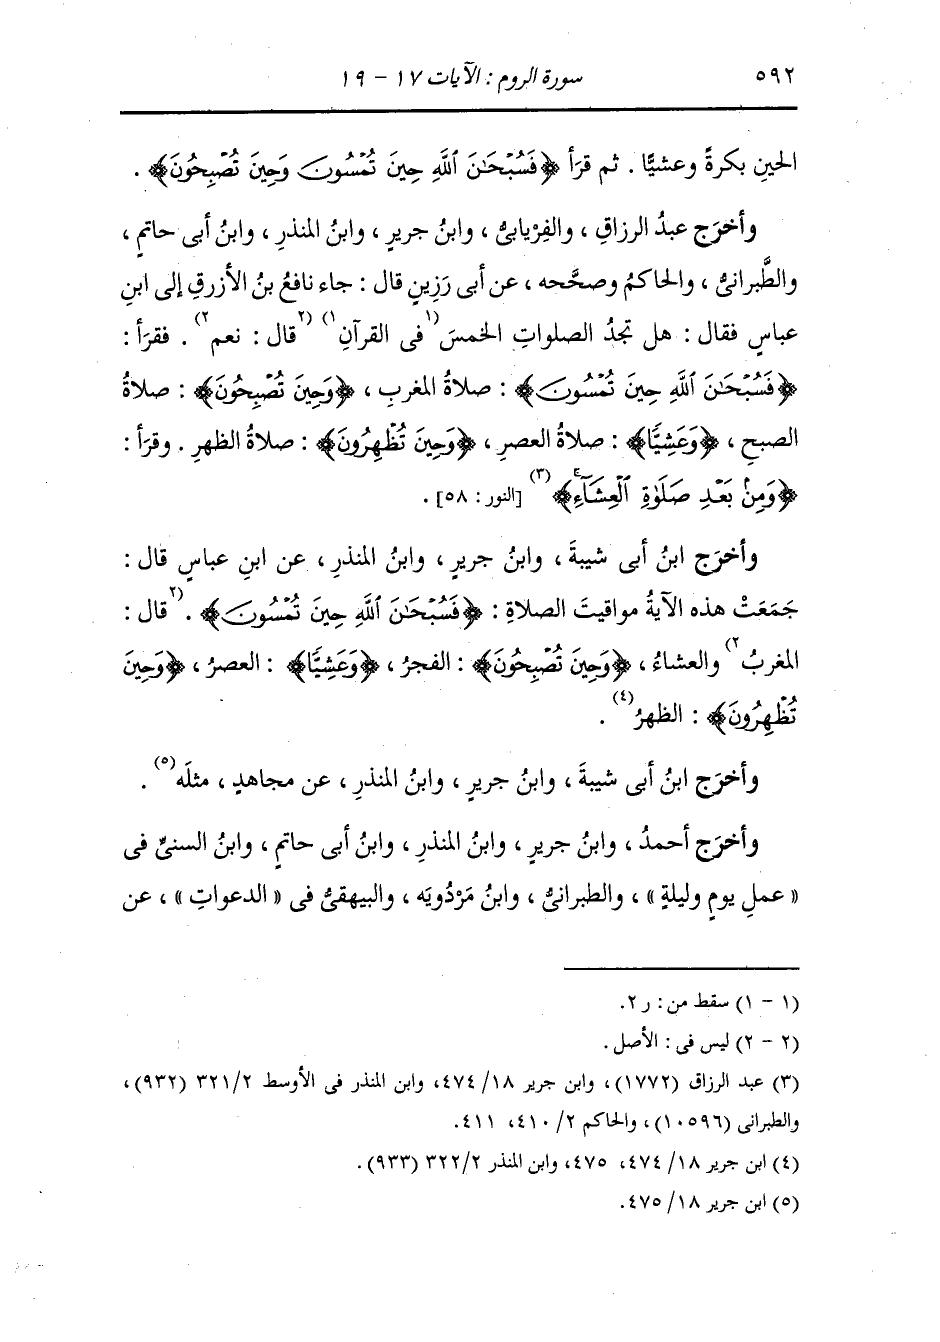 ٥٩٢ سورة الروم : الآيات ١٧ - ١٩
الحينِ بكرةً وعشيًّا . ثم قرَأ ﴿فَسُبْحَٰنَ ٱللَّهِ حِينَ تُمْسُونَ وَحِينَ تُصْبِحُونَ﴾ .
وأخرَج عبدُ الرزاقِ ، والفِرْيابىُّ ، وابنُ جريرٍ ، وابنُ المنذرِ ، وابنُ أبى حاتمٍ ،
والطَّبرانىُّ ، والحاكمُ وصحَّحه ، عن أبى رَزِينٍ قال : جاء نافعُ بنُ الأزرقِ إلى ابنِ
عباسٍ فقال : هل تجدُ الصلواتِ الخمسَ (١فى القرآنِ١) (٢قال : نعم٢) . فقرَأ :
﴿فَسُبْحَٰنَ ٱللَّهِ حِينَ تُمْسُونَ﴾ : صلاةُ المغربِ ، ﴿وَحِينَ تُصْبِحُونَ﴾ : صلاةُ
الصبحِ ، ﴿وَعَشِيًّا﴾ : صلاةُ العصرِ ، ﴿وَحِينَ تُظْهِرُونَ﴾ : صلاةُ الظهرِ . وقرَأ :
﴿وَمِنۢ بَعْدِ صَلَوٰةِ ٱلْعِشَآءِۚ﴾(٣) [النور : ٥٨] .
وأخرَج ابنُ أبى شيبةَ ، وابنُ جريرٍ ، وابنُ المنذرِ ، عن ابنِ عباسٍ قال :
جَمَعَتْ هذه الآيةُ مواقيتَ الصلاةِ : ﴿فَسُبْحَٰنَ ٱللَّهِ حِينَ تُمْسُونَ﴾ . (٢قال :
المغربُ٢) والعشاءُ ، ﴿وَحِينَ تُصْبِحُونَ﴾ : الفجرُ ، ﴿وَعَشِيًّا﴾ : العصرُ ، ﴿وَحِينَ
تُظْهِرُونَ﴾ : الظهرُ(٤) .
وأخرَج ابنُ أبى شيبةَ ، وابنُ جريرٍ ، وابنُ المنذرِ ، عن مجاهدٍ ، مثلَه(٥) .
وأخرَج أحمدُ ، وابنُ جريرٍ ، وابنُ المنذرِ ، وابنُ أبى حاتمٍ ، وابنُ السنىِّ فى
« عملِ يومٍ وليلةٍ » ، والطبرانىُّ ، وابنُ مَرْدُويَه ، والبيهقىُّ فى « الدعواتِ » ، عن
(١ - ١) سقط من : ر ٢.
(٢ - ٢) ليس فى : الأصل .
(٣) عبد الرزاق (١٧٧٢) ، وابن جرير ١٨/ ٤٧٤، وابن المنذر فى الأوسط ٣٢١/٢ (٩٣٢) ،
والطبرانى (١٠٥٩٦) ، والحاكم ٢/ ٤١٠، ٤١١.
(٤) ابن جرير ١٨/ ٤٧٤، ٤٧٥، وابن المنذر ٣٢٢/٢ (٩٣٣).
(٥) ابن جرير ١٨/ ٤٧٥.